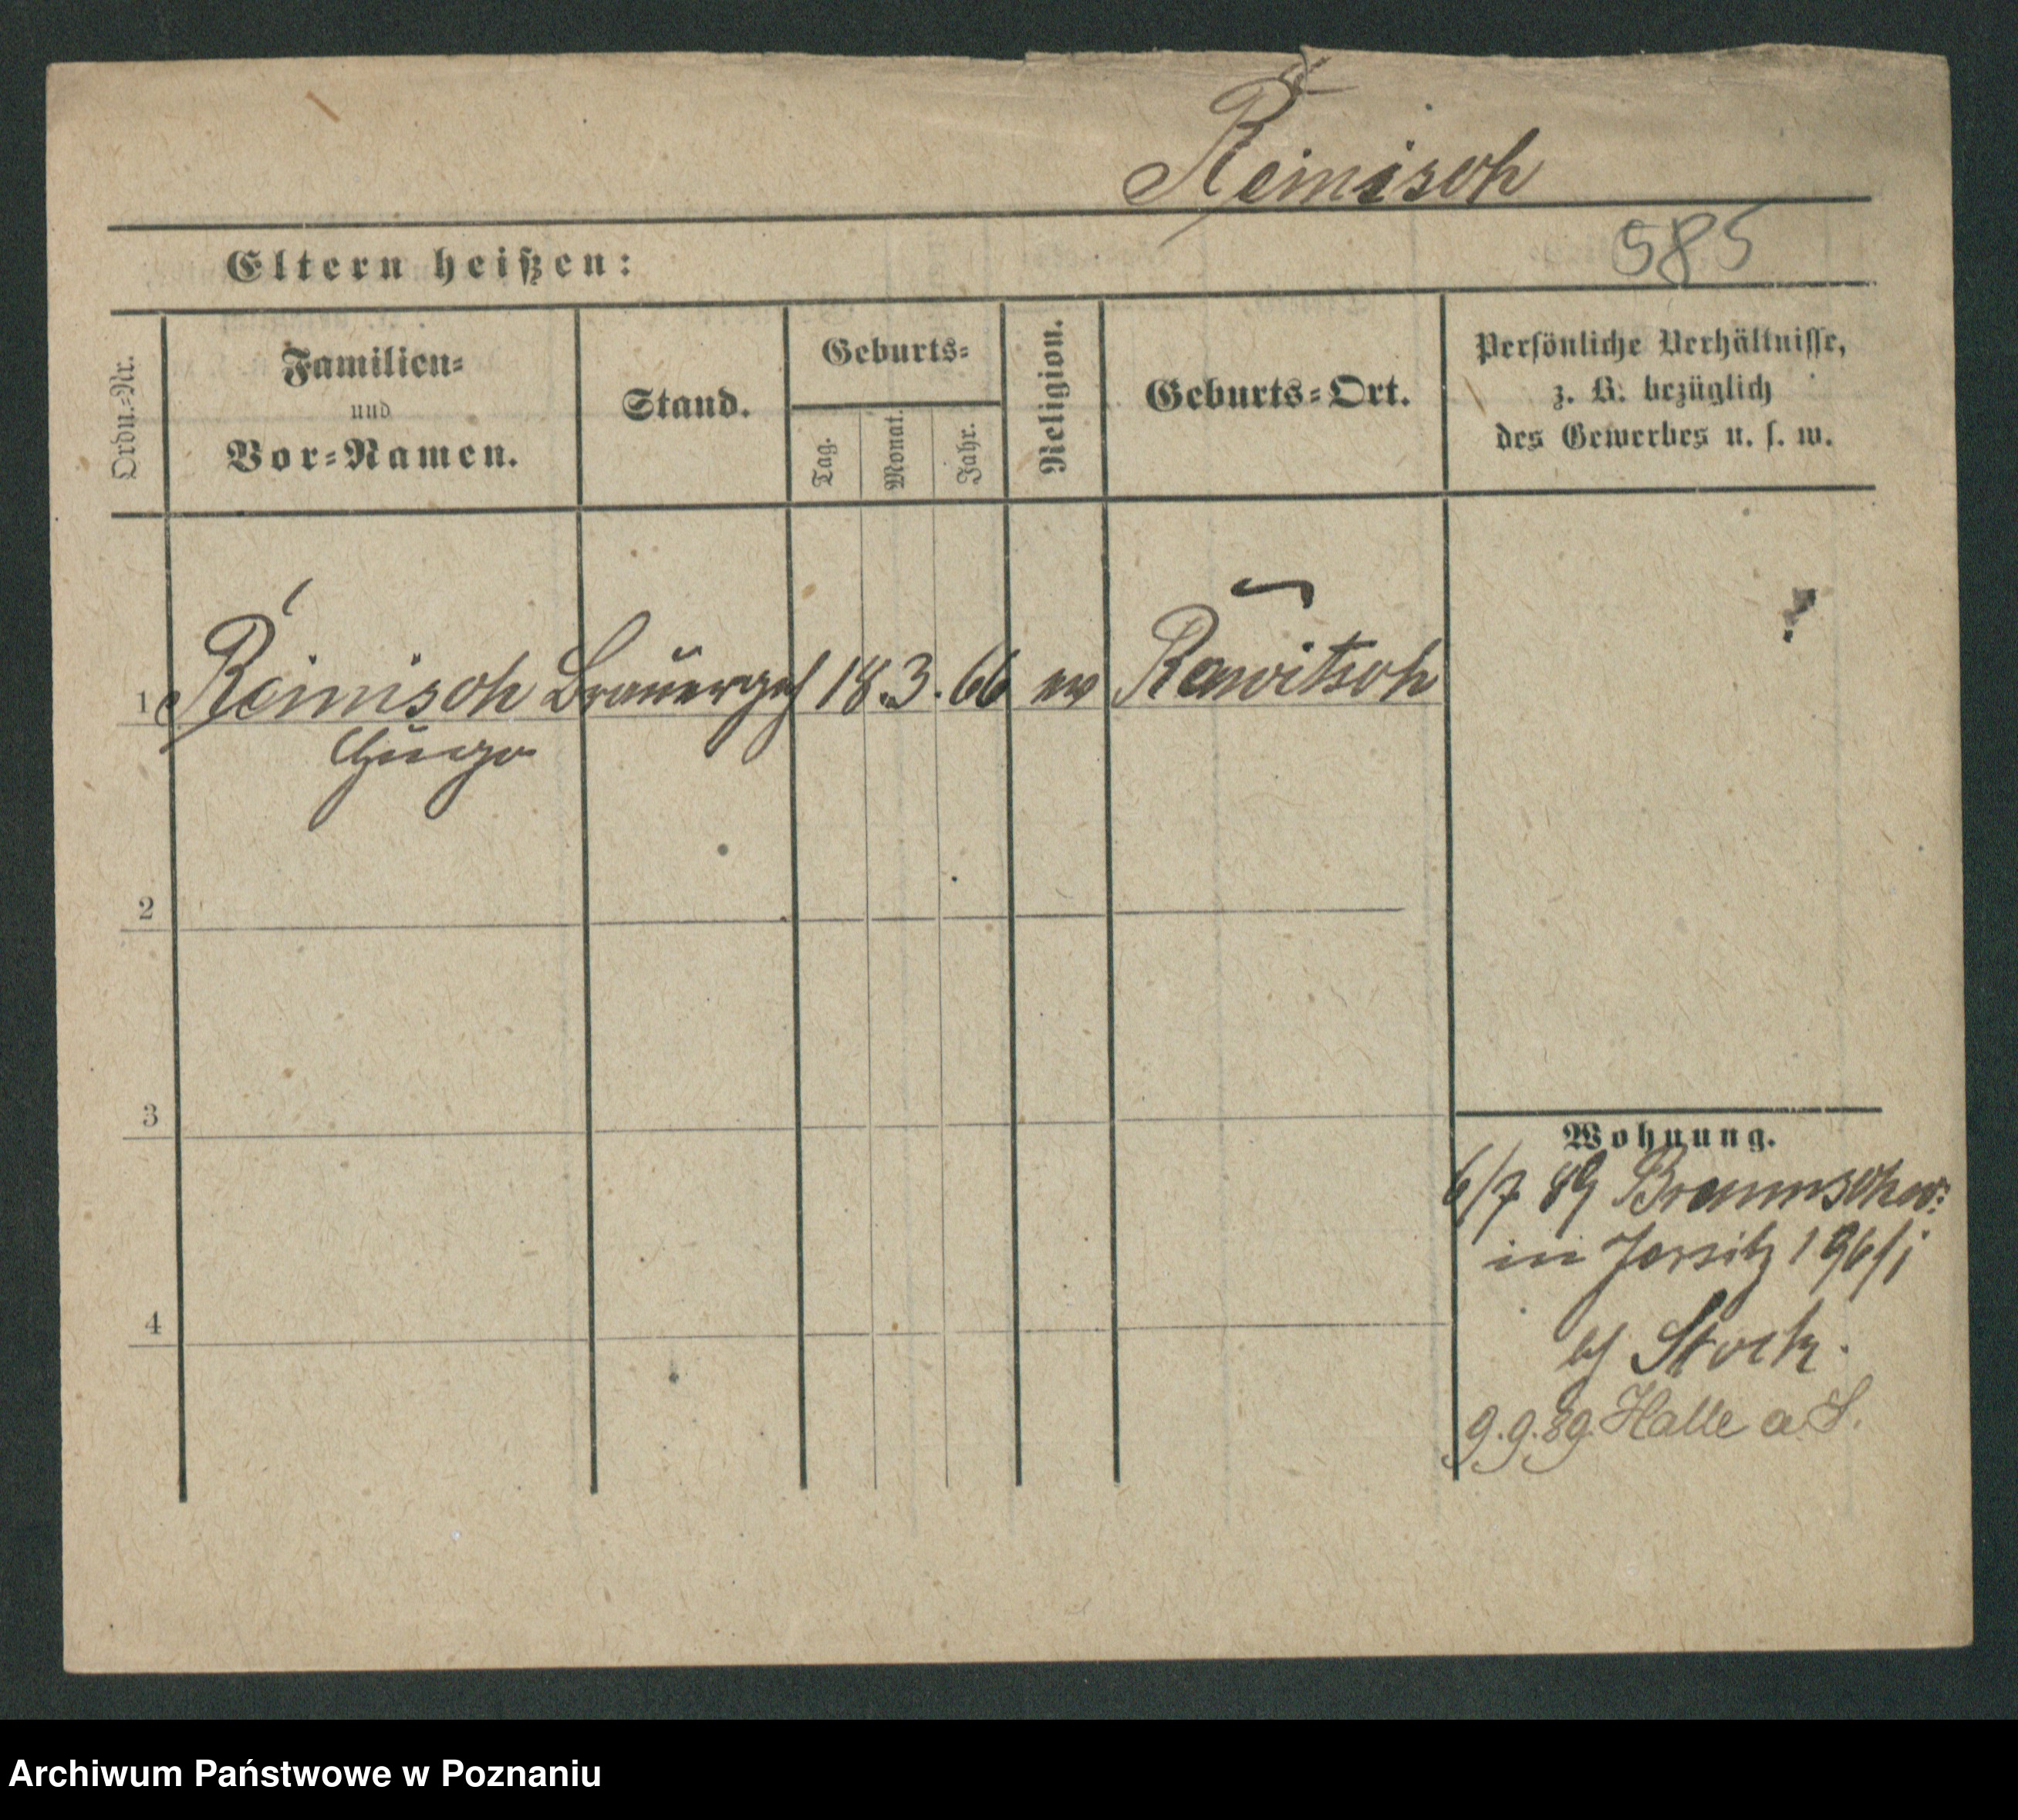 Reimisch
585
Eltern heißen:
Ordn.-Nr.
Familien-
und
Vor-Namen.
Stand.
Geburts-
Tag.
Monat.
Jahr.
Religion.
Geburts-Ort.
Persönliche Verhältnisse,
z. B. bezüglich
des Gewerbes u. s. w.
1 Reimisch Brauerges 18. 3. 66 ev Rawitsch
Hugo
2
3
4
Wohnung.
6/7 89 Braunschw:
in Jersitz 196/i
Stock.
9.9.89. Halle a S.
Archiwum Państwowe w Poznaniu